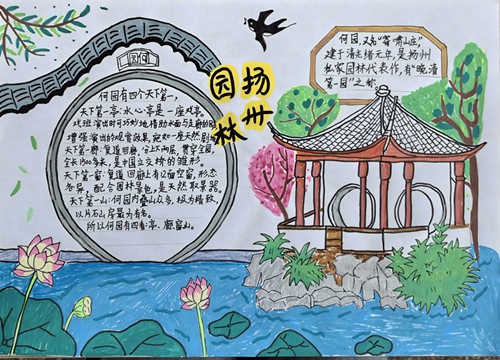 何园
扬州
园林
何园，又名"寄啸山庄"，
建于清光绪元年，是扬州
私家园林代表作，有"晚清
第一园"之称。
何园有四个天下第一，
天下第一亭：水心亭是一座戏亭，
戏班演出时可巧妙地借助水面与走廊的回
增强演出的观赏效果，宛如一座天然剧
天下第一廊：复道回廊，分上下两层，贯穿全园，
全长1500多米，是中国立交桥的雏形。
天下第一窗：复道回廊上有几面空窗，形态
各异，配合园林景色，是天然取景器。
天下第一山：何园内叠山众多，极为精致，
以片石山房最为有名。
所以何园有四看：亭、廊、窗、山。